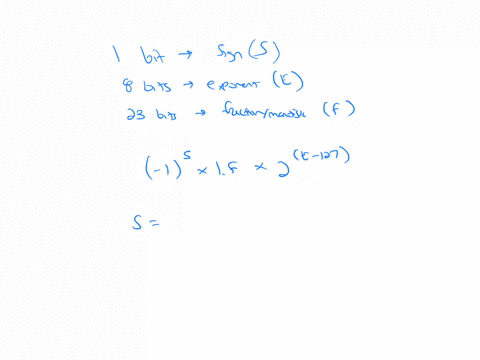 1 bit → sign (S)
8 bits → exponent (E)
23 bits → fraction/mantissa (F)
(-1)^S × 1.F × 2^(E-127)
S =